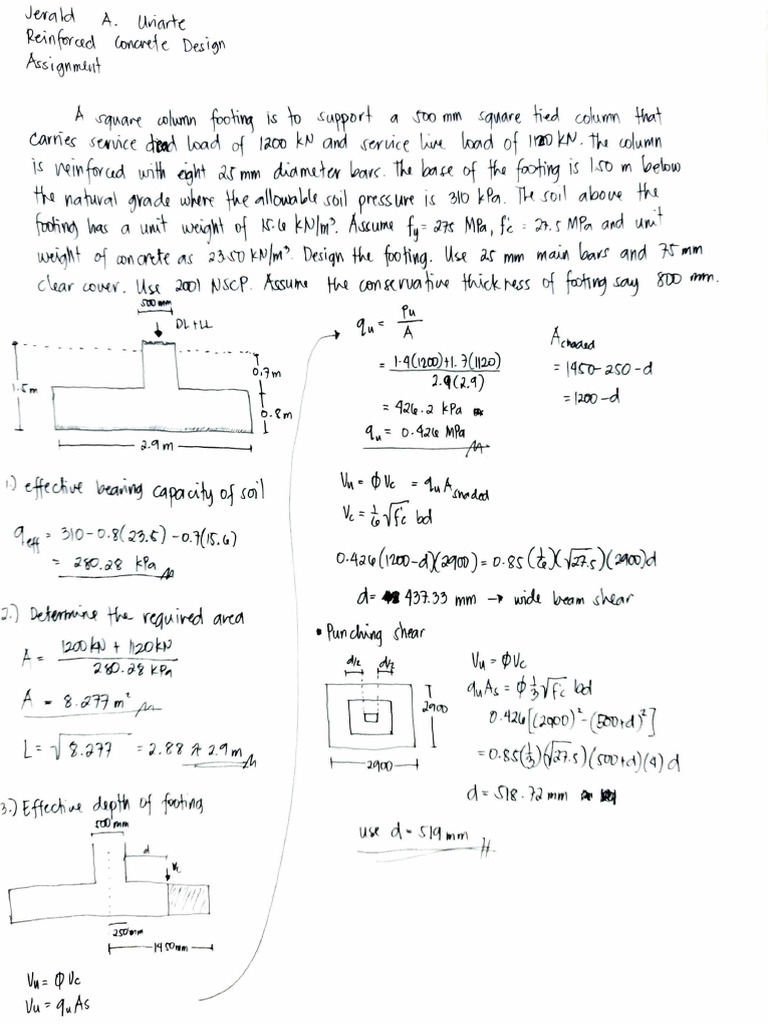 Jerald A. Uriarte
Reinforced Concrete Design
Assignment
A square column footing is to support a 500 mm square tied column that
carries service dead load of 1200 kN and service live load of 1120 kN. The column
is reinforced with eight 25 mm diameter bars. The base of the footing is 1.50 m below
the natural grade where the allowable soil pressure is 310 kPa. The soil above the
footing has a unit weight of 15.6 kN/m³. Assume fy = 275 MPa, f'c = 27.5 MPa and unit
weight of concrete as 23.50 kN/m³. Design the footing. Use 25 mm main bars and 75 mm
clear cover. Use 2001 NSCP. Assume the conservative thickness of footing say 800 mm.
500 mm
DL + LL
1.5 m
0.7m
0.8 m
2.9 m
1.) effective bearing capacity of soil
qeff = 310 - 0.8(23.5) - 0.7(15.6)
= 280.28 kPa
2.) Determine the required area
A = 1200 kN + 1120 kN
280.28 kPa
A = 8.277 m²
L = √8.277 = 2.88 ≈ 2.9 m
3.) Effective depth of footing
500 mm
d
Vc
250mm
1450mm
Vu = φ Vc
Vu = qu As
qu = Pu
A
= 1.4(1200) + 1.7(1120)
2.9(2.9)
= 426.2 kPa
qu = 0.426 MPa
Ashaded
= 1450 - 250 - d
= 1200 - d
Vu = φ Vc = qu Ashaded
Vc = 1/6 √f'c bd
0.426(1200-d)(2900) = 0.85(1/6)(√27.5)(2900)d
d = 437.33 mm → wide beam shear
• Punching shear
d/2 d/2
2900
2900
Vu = φVc
quAs = φ 1/3 √f'c bd
0.426[(2900)² - (500+d)²]
= 0.85(1/3)(√27.5)(500+d)(4)d
d = 518.72 mm
use d = 519 mm